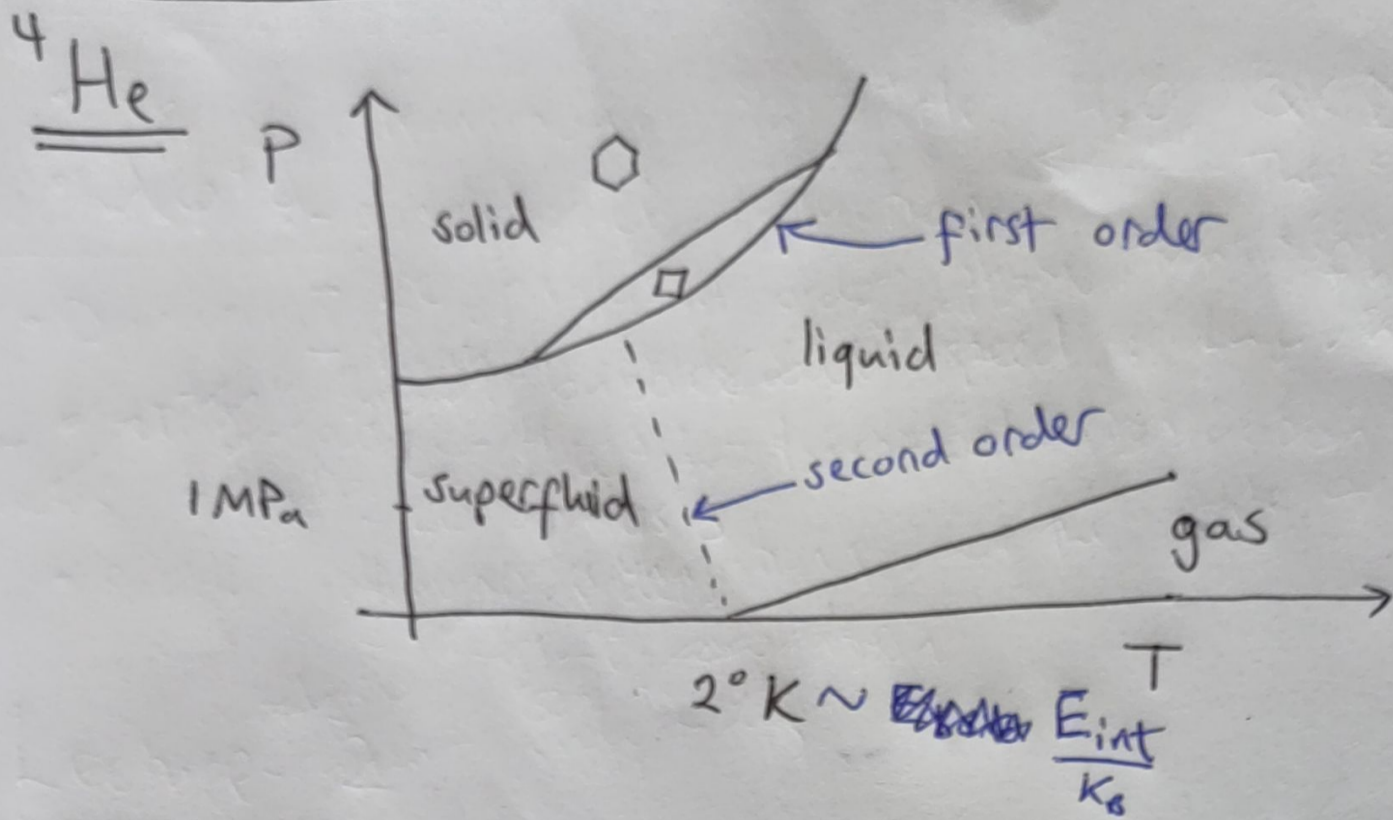 ⁴He
P
solid
first order
liquid
second order
1 MPa
superfluid
gas
T
2° K ~ E_int
K_B